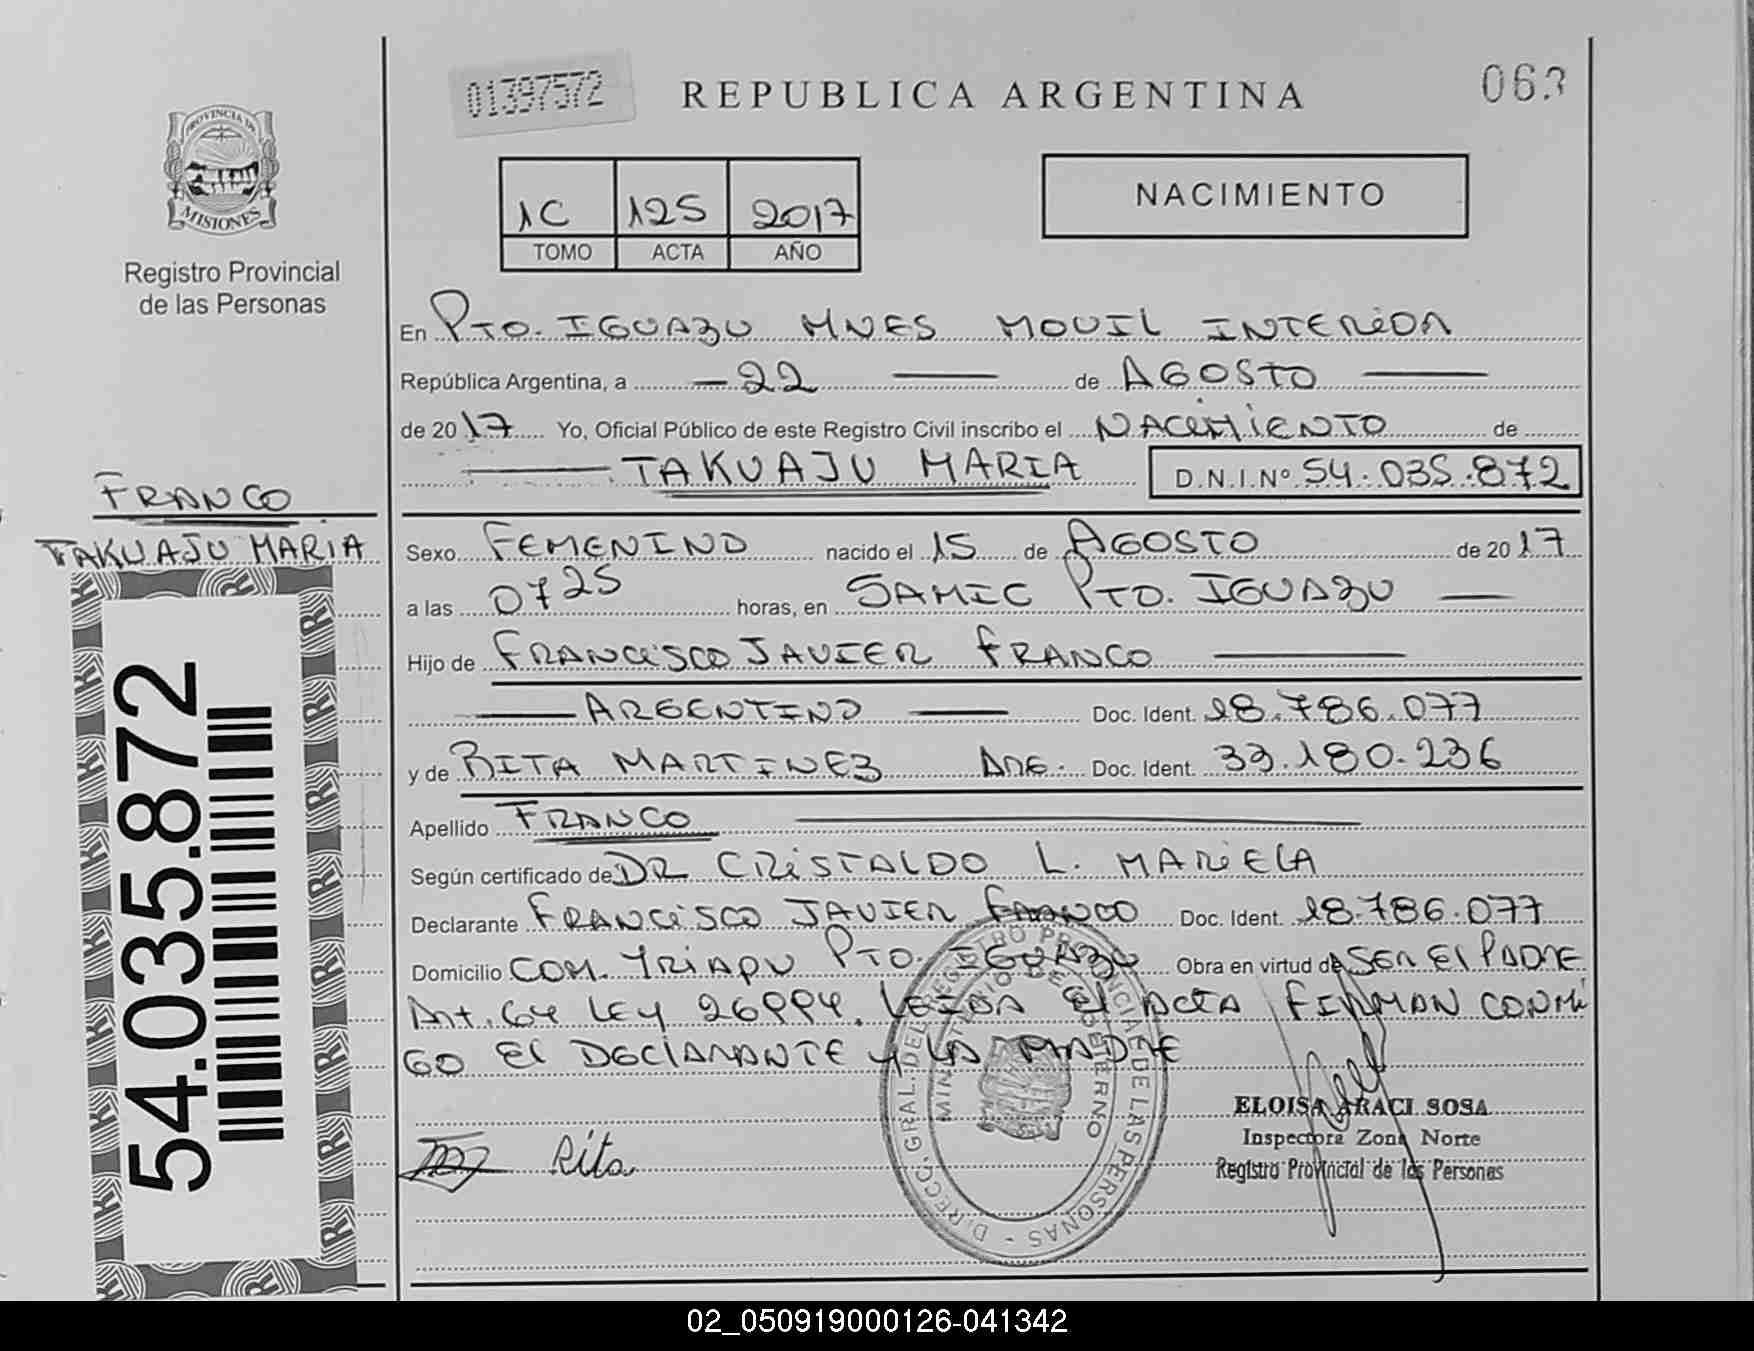 01397572
REPUBLICA ARGENTINA
063
PROVINCIA DE
MISIONES
Registro Provincial
de las Personas
1C 125 2017
TOMO ACTA AÑO
NACIMIENTO
En PTO. IGUAZU MNES MOVIL INTERIOR
República Argentina, a 22 de AGOSTO
de 2017 Yo, Oficial Público de este Registro Civil inscribo el NACIMIENTO de
TAKUAJU MARIA D.N.I.Nº 54.035.872
FRANCO
TAKUAJU MARIA
54.035.872
Sexo FEMENINO nacido el 15 de AGOSTO de 2017
a las 0725 horas, en SAMIC PTO. IGUAZU
Hijo de FRANCISCO JAVIER FRANCO
ARGENTINO Doc. Ident. 18.786.077
y de RITA MARTINEZ ARG. Doc. Ident. 33.180.236
Apellido FRANCO
Según certificado de DR CRISTALDO L. MARIELA
Declarante FRANCISCO JAVIER FRANCO Doc. Ident. 18.786.077
Domicilio COM. YRIAPU PTO. IGUAZU Obra en virtud de SER El PADRE
Art. 64 LEY 26994. LEIDA El ACTA FIRMAN CONMI
GO El DECLARANTE y LA MADRE
DIRECC. GRAL. DEL REGISTRO PROVINCIAL DE LAS PERSONAS
MINISTERIO DE GOBIERNO
ELOISA ARACI SOSA
Inspectora Zona Norte
Registro Provincial de las Personas
Rita
02_050919000126-041342